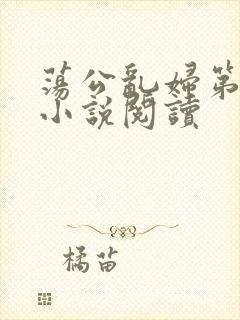 蕩公亂婦第
小說閱讀
橘苗